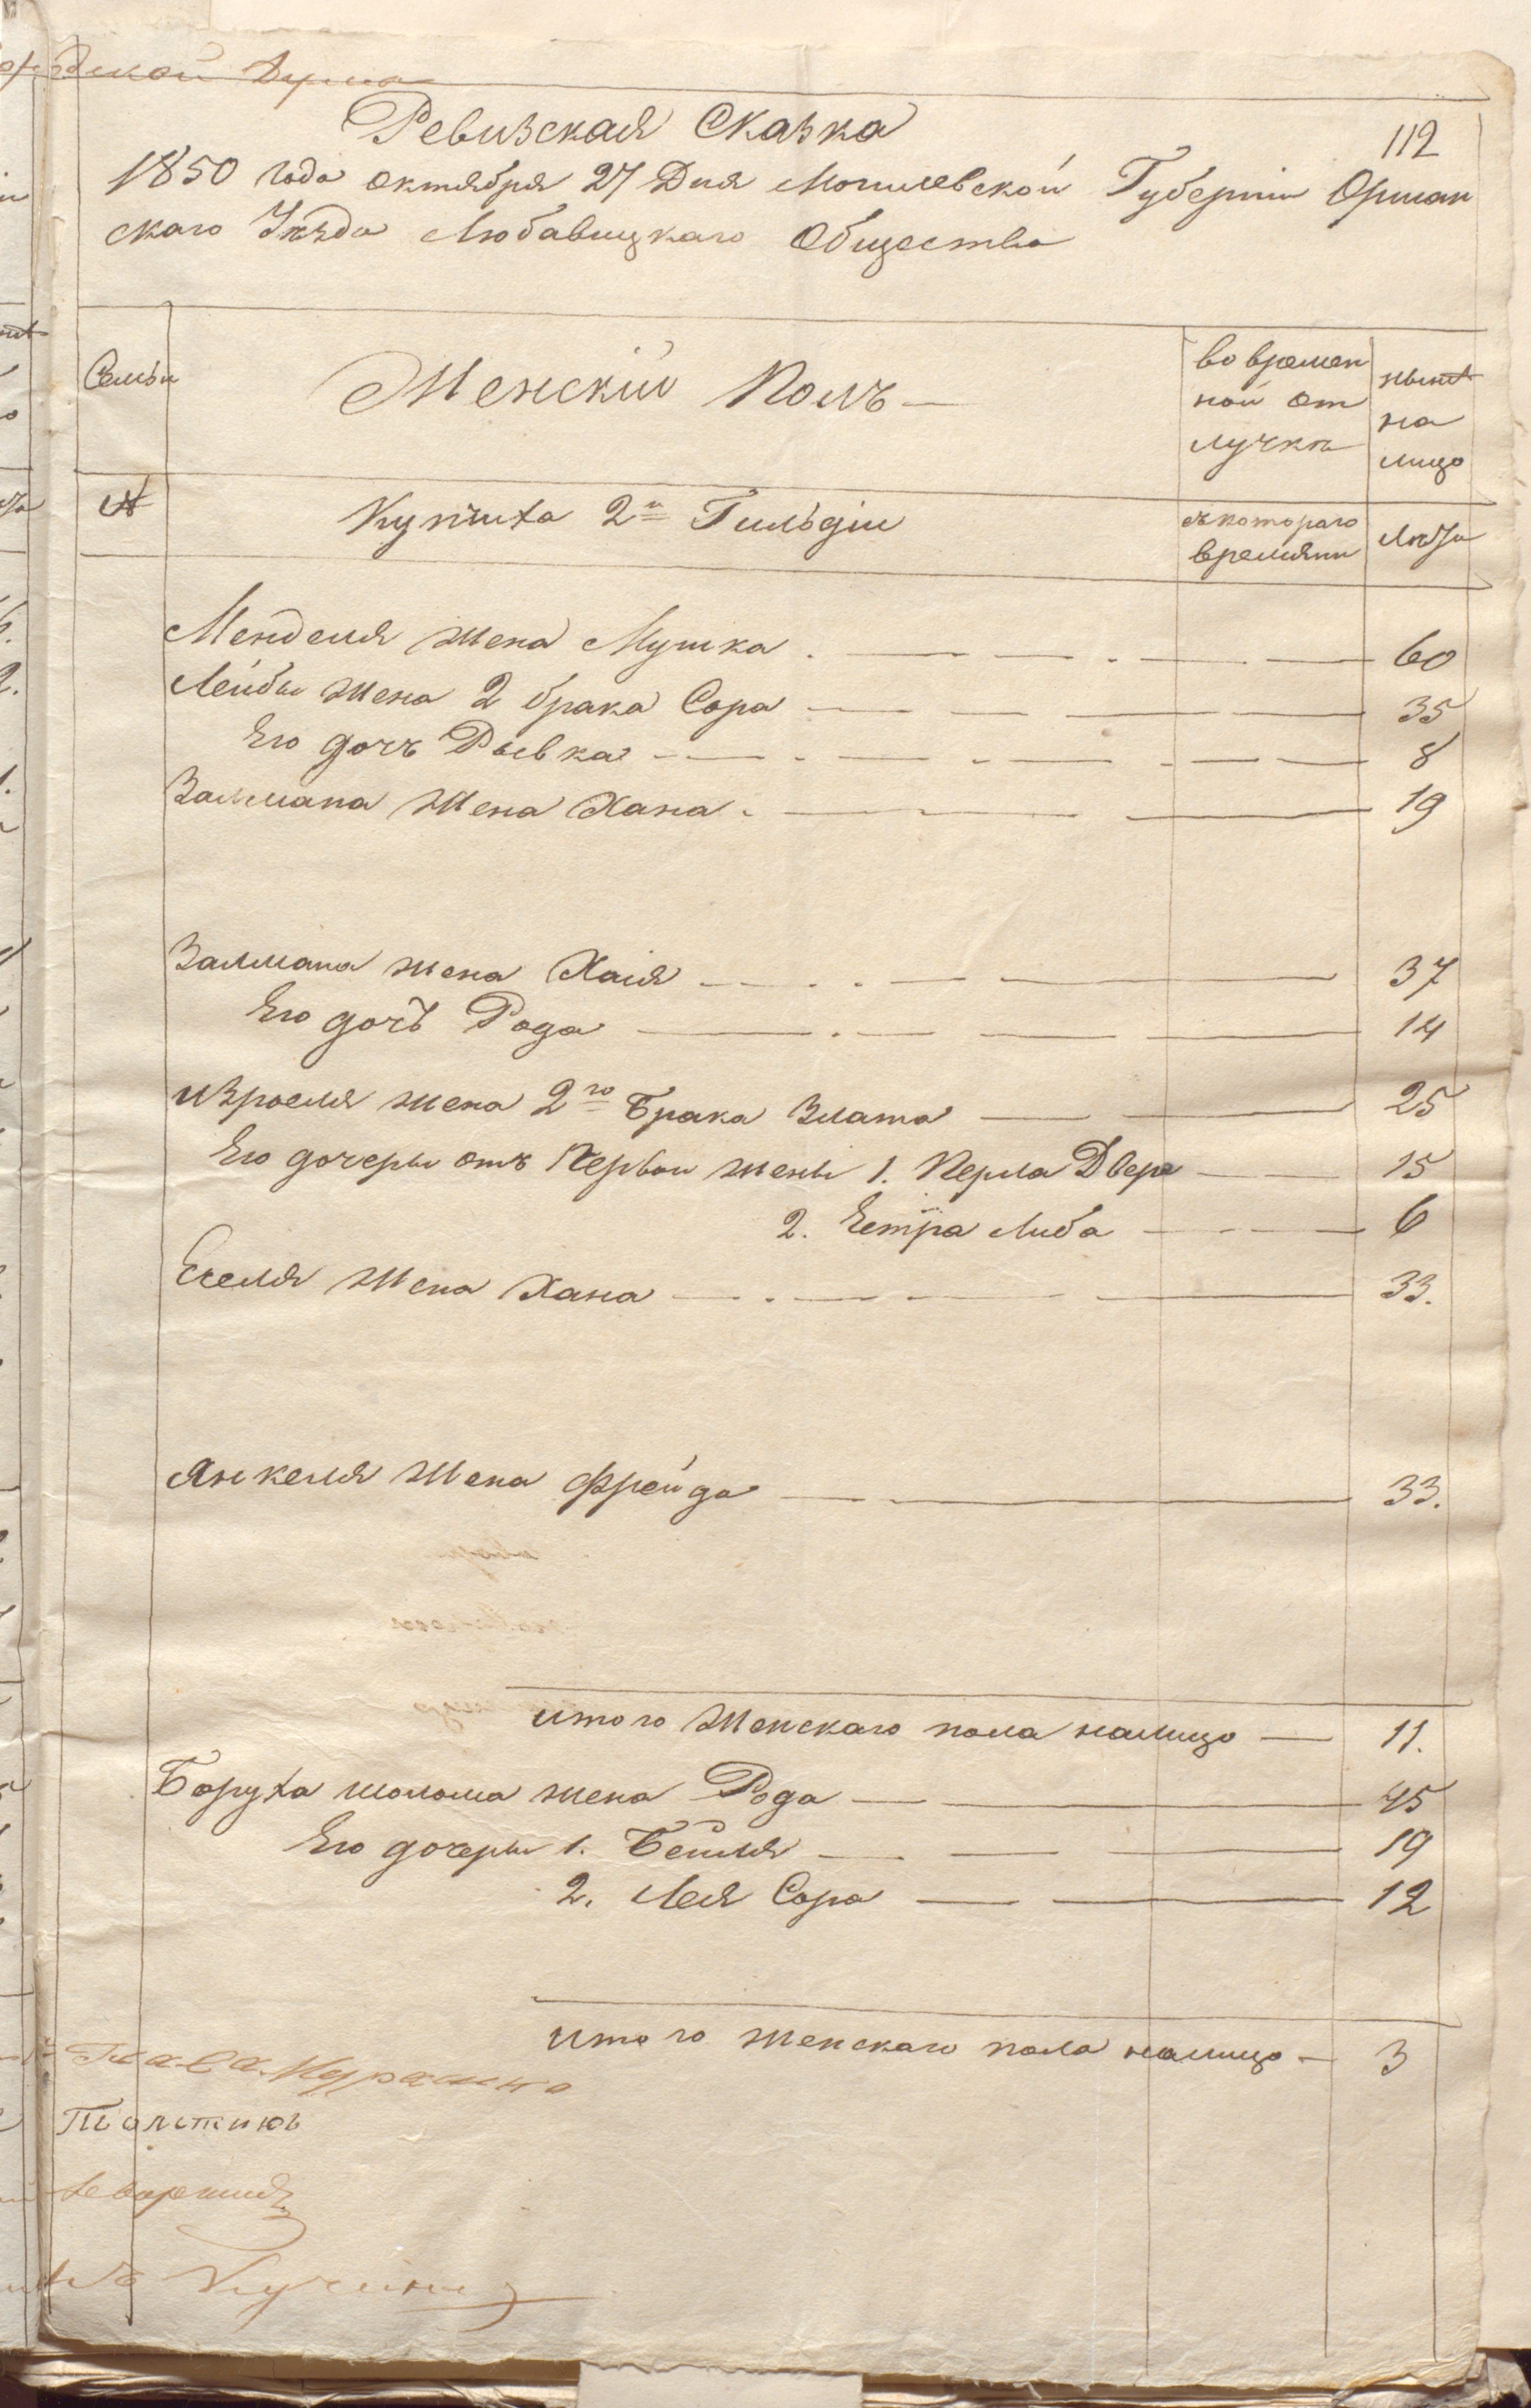 Ревизская Сказка
112
1850 года октября 27 Дня Могилевской Губернiи Оршан
скаго Уѣзда Любавицкаго Общества
Семьи
Женскiй Полъ
во времен
ной от
лучкѣ
нынѣ
на
лицо
№
Купчиха 2й Гильдiи
съ котораго
времяни
Лѣта
Менделя жена Мушка 60
Лейбы жена 2 брака Сора 35
Его дочь Рывка 8
Залмана жена Хана 19
Залмана жена Хаiя 37
Его дочь Рода 14
Израеля жена 2го Брака Злата 25
Его дочеры отъ Первои жены 1. Перла Двера 15
2. Естра Либа 6
Ехеля жена Хана 33.
Янкеля жена Фрейда 33.
итого женскаго пола налицо 11.
Боруха шолома жена Рода 45
Его дочеры 1. Бейля 19
2. Лея Сора 12
итого женскаго пола налицо 3